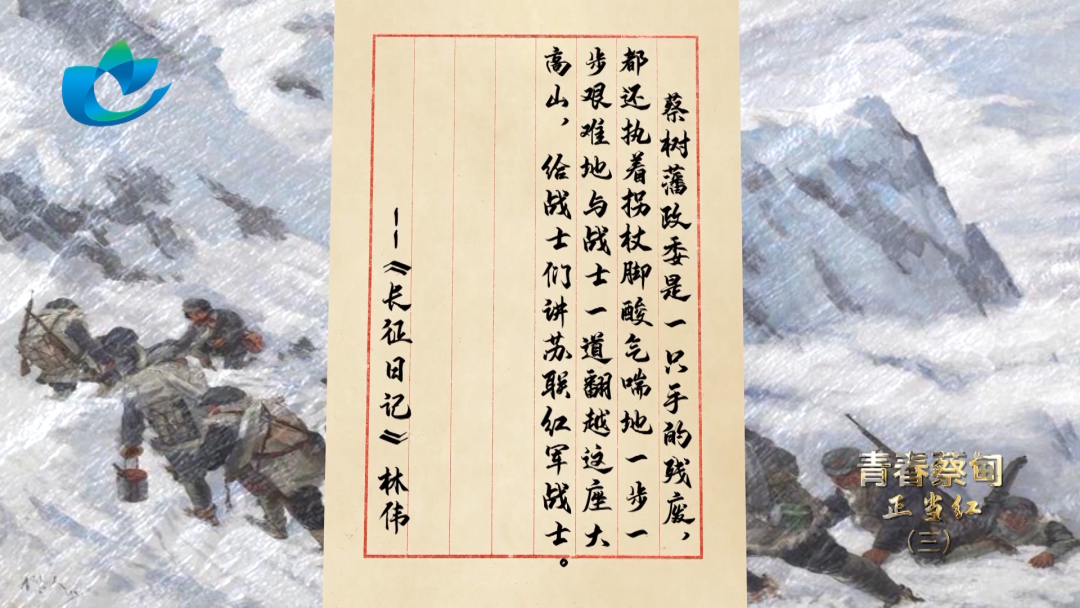 蔡树藩政委是一只手的残废，
都还执着拐杖脚酸气喘地一步一
步艰难地与战士一道翻越这座大
高山，给战士们讲苏联红军战士。
——《长征日记》林伟
青春蔡甸
正当红
（三）